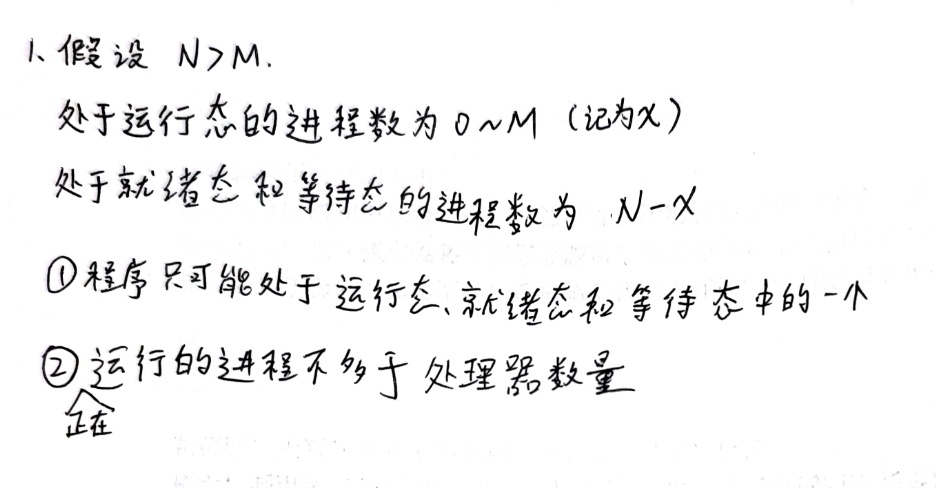 1、假设 N>M.
处于运行态的进程数为 0~M (记为x)
处于就绪态和等待态的进程数为 N-x
①程序只可能处于运行态、就绪态和等待态中的一个
②正在运行的进程不多于处理器数量